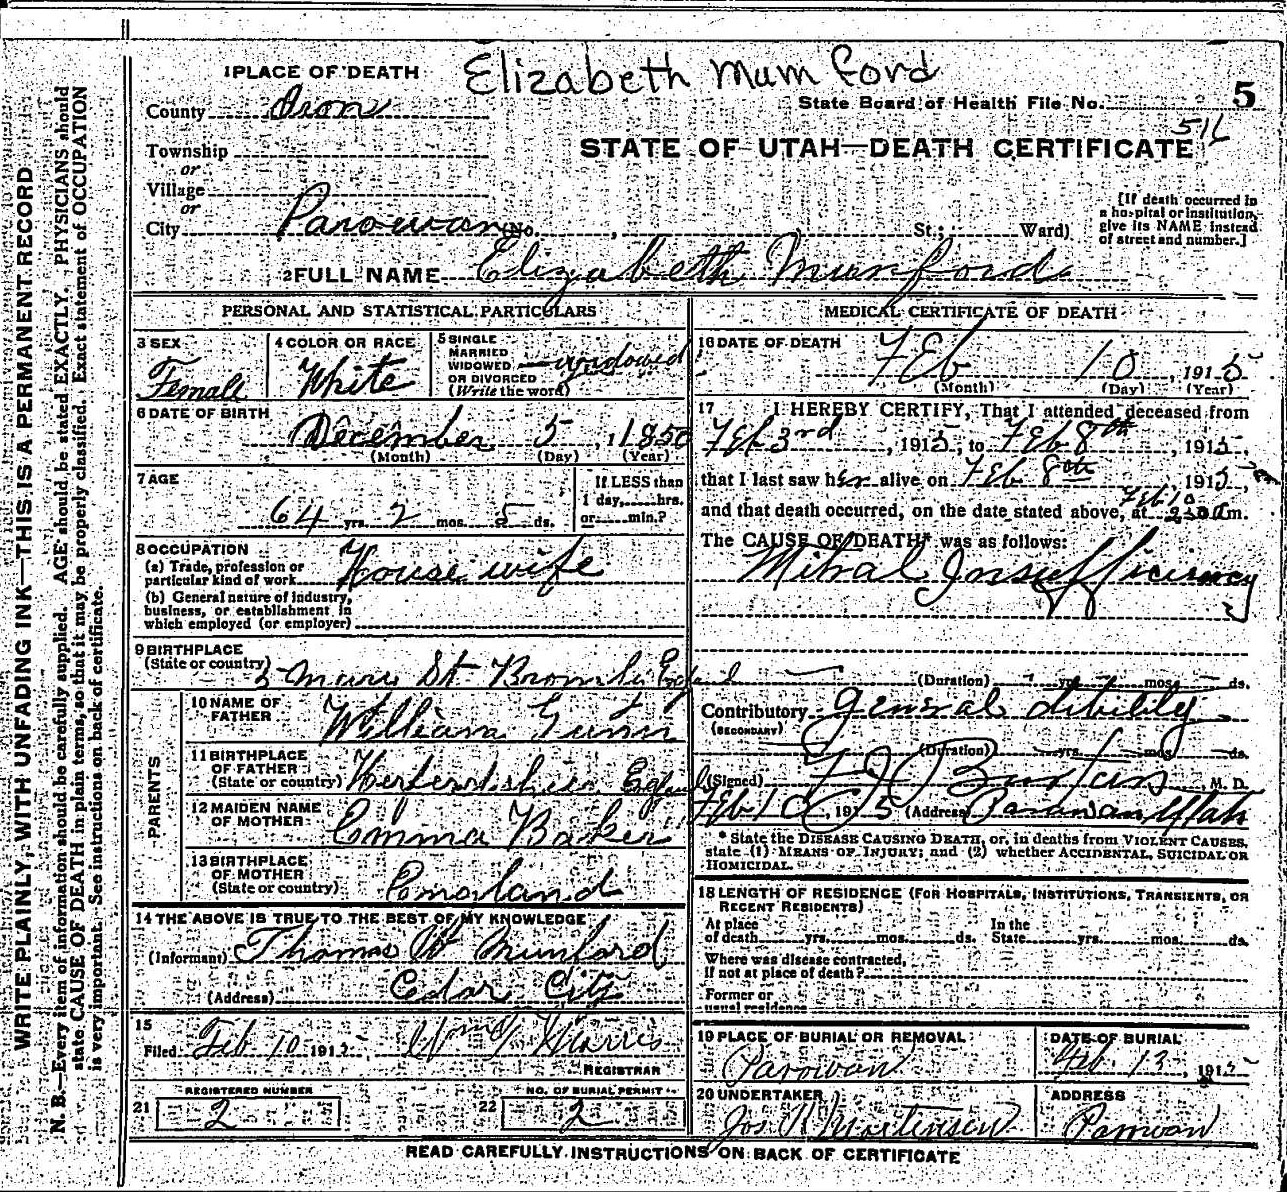 Elizabeth Mumford
1 PLACE OF DEATH
County Iron
State Board of Health File No. 5
516
Township
or
Village
or
City Parowan (No. , St.; Ward)
STATE OF UTAH—DEATH CERTIFICATE
[If death occurred in a hospital or institution, give its NAME instead of street and number.]
2 FULL NAME Elizabeth Munford
PERSONAL AND STATISTICAL PARTICULARS
3 SEX
Female
4 COLOR OR RACE
White
5 SINGLE
MARRIED
WIDOWED
OR DIVORCED
(Write the word)
widowed
6 DATE OF BIRTH
December 5, 1850
(Month) (Day) (Year)
7 AGE
64 yrs. 2 mos. 5 ds.
If LESS than
1 day, hrs.
or min.?
8 OCCUPATION
(a) Trade, profession or
particular kind of work House wife
(b) General nature of industry,
business, or establishment in
which employed (or employer)
9 BIRTHPLACE
(State or country) St. England
PARENTS
10 NAME OF
FATHER William
11 BIRTHPLACE
OF FATHER
(State or country)
12 MAIDEN NAME
OF MOTHER Emma Baker
13 BIRTHPLACE
OF MOTHER
(State or country) England
14 THE ABOVE IS TRUE TO THE BEST OF MY KNOWLEDGE
(Informant) Thomas W Munford
(Address) Cedar City
15
Filed Feb 10 1915, Wm Harris
REGISTRAR
REGISTERED NUMBER
21 2
NO. OF BURIAL PERMIT
22 2
MEDICAL CERTIFICATE OF DEATH
16 DATE OF DEATH
Feb 10, 1915
(Month) (Day) (Year)
17 I HEREBY CERTIFY, That I attended deceased from
Feb 3rd, 1915, to Feb 8th, 1915,
that I last saw her alive on Feb 8th, 1915,
and that death occurred, on the date stated above, at Feb 10 m.
The CAUSE OF DEATH* was as follows:
Mitral Insufficiency
(Duration) yrs. mos. ds.
Contributory general dibility
(SECONDARY)
(Duration) yrs. mos. ds.
(Signed) Burton, M. D.
Feb 10, 1915 (Address) Parowan Utah
* State the DISEASE CAUSING DEATH, or, in deaths from VIOLENT CAUSES,
state (1) MEANS OF INJURY; and (2) whether ACCIDENTAL, SUICIDAL OR
HOMICIDAL.
18 LENGTH OF RESIDENCE (FOR HOSPITALS, INSTITUTIONS, TRANSIENTS, OR
RECENT RESIDENTS)
At place
of death yrs. mos. ds.
In the
State yrs. mos. ds.
Where was disease contracted,
if not at place of death?
Former or
usual residence
19 PLACE OF BURIAL OR REMOVAL
Parowan
DATE OF BURIAL
Feb. 13, 1915
20 UNDERTAKER
Jos. Mortensen
ADDRESS
Parowan
READ CAREFULLY INSTRUCTIONS ON BACK OF CERTIFICATE
WRITE PLAINLY, WITH UNFADING INK—THIS IS A PERMANENT RECORD
N. B.—Every item of information should be carefully supplied. AGE should be stated EXACTLY. PHYSICIANS should
state CAUSE OF DEATH in plain terms, so that it may be properly classified. Exact statement of OCCUPATION
is very important. See instructions on back of certificate.